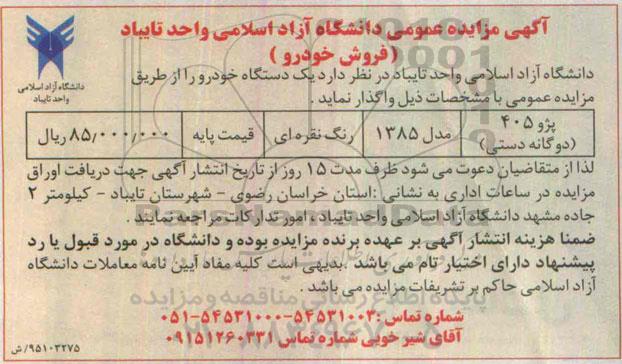 آگهی مزایده عمومی دانشگاه آزاد اسلامی واحد تایباد
( فروش خودرو )
دانشگاه آزاد اسلامی
واحد تایباد
دانشگاه آزاد اسلامی واحد تایباد در نظر دارد یک دستگاه خودرو را از طریق
مزایده عمومی با مشخصات ذیل واگذار نماید .
پژو ۴۰۵
(دوگانه دستی) مدل ۱۳۸۵ رنگ نقره ای قیمت پایه ۸۵/۰۰۰/۰۰۰ ریال
لذا از متقاضیان دعوت می شود ظرف مدت ۱۵ روز از تاریخ انتشار آگهی جهت دریافت اوراق
مزایده در ساعات اداری به نشانی :استان خراسان رضوی - شهرستان تایباد - کیلومتر ۲
جاده مشهد دانشگاه آزاد اسلامی واحد تایباد ، امور تدارکات مراجعه نمایند .
ضمنا هزینه انتشار آگهی بر عهده برنده مزایده بوده و دانشگاه در مورد قبول یا رد
پیشنهاد دارای اختیار تام می باشد .بدیهی است کلیه مفاد آیین نامه معاملات دانشگاه
آزاد اسلامی حاکم بر تشریفات مزایده می باشد .
پایگاه اطلاع رسانی مناقصه و مزایده
شماره تماس :۵۴۵۳۱۰۰۳-۵۴۵۳۱۰۰۰-۰۵۱
آقای شیر خوبی شماره تماس ۰۹۱۵۱۲۶۰۳۳۱
۹۵۱۰۳۲۷۵/ش